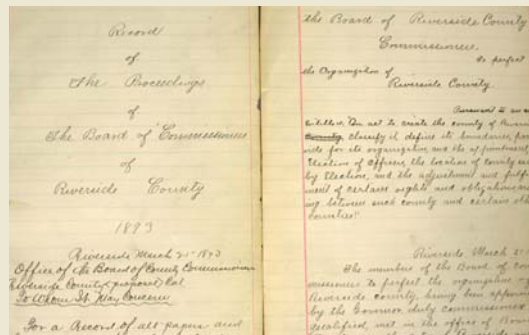 Record
of
The Proceedings
of
The Board of Commissioners
of
Riverside County
1893
Riverside March 21st 1893
Office of the Board of County Commissioners
Riverside County (proposed) Cal.
To Whom It May Concern
For a Record of all papers and
the Board of Riverside County
Commissioners.
to perfect
the Organization of
Riverside County.
Pursuant to an
entitled "An act to create the county of
County, classify it define its boundaries,
vide for its organization, and the appointment,
Election of Officers, the location of county
by Election, and the adjustment and
ment of certain rights and obligations
ing between such county and certain
counties"
Riverside, March
The members of the Board of
missioners to perfect the organization
Riverside county, having been
by the Governor, duly commissioned
qualified, met in the office of